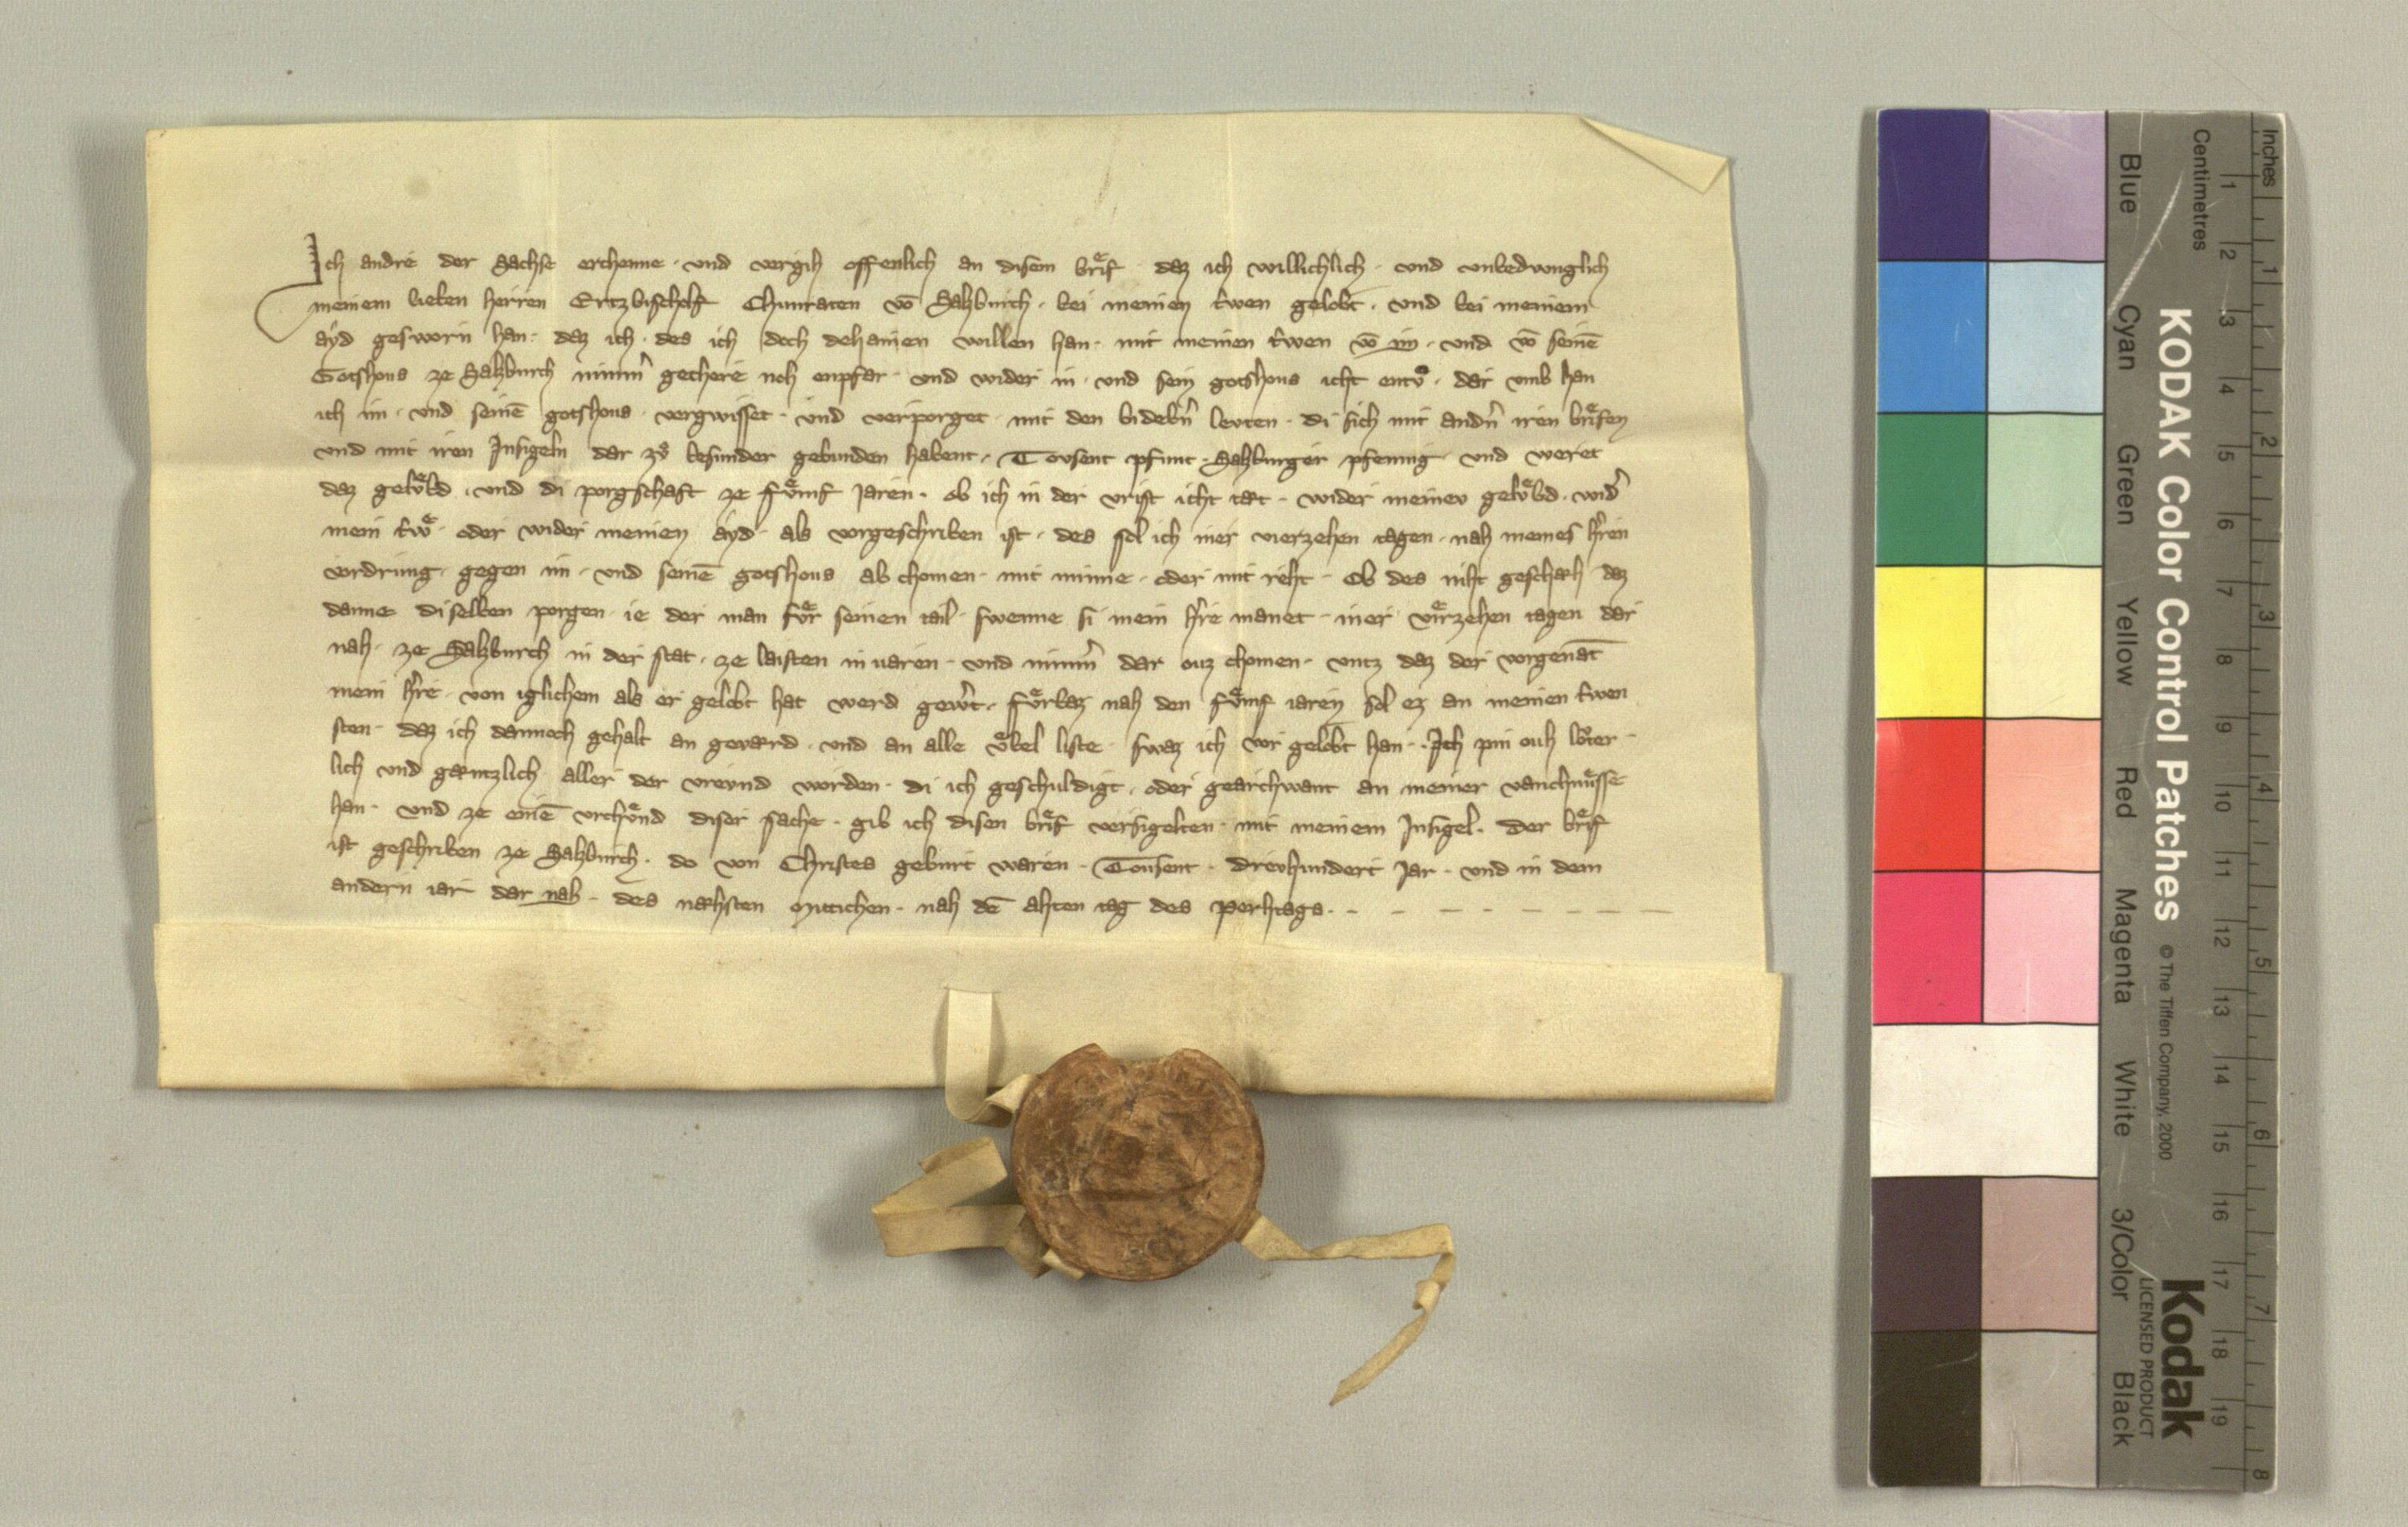 Ich andre der Sachse erchenne · vnd vergih offenlich an disem brͤif · daz ich willichlich · vnd vnbedwnglich
meinem lieben herren Ertzbischolf Chunraten vō Salzburch · bei meinen triwen gelobt · vnd bei meinem
ayd gesworn han · daz ich · des ich doch dehainen willen han · mit meinen triwen vō im · vnd vō seinē
Gotshous ze Salzburch nimm̄ gechere noh enpfar · vnd wider in · vnd sein gotshous icht entvͦ · dar vmb han
ich im · vnd seinē gotshous · vergwisset · vnd verporget · mit den bidebn̄ levten · di sich mit andn̄ iren brͤifen
vnd mit iren Insigeln dar zvͦ besunder gebunden habent · Tovsent pfunt · Salzburger pfennig · vnd weret
daz gelvͤbd · vnd di porgschaft ze fvͤmf Jaren · ob ich in der vrist icht tæt · wider meinev gelvͤbd · wid̄
mein triwͤ · oder wider meinen ayd · als vorgeschriben ist · des sol ich iner vierzehen tagen · nah meines hr̄en
vordrung · gegen im · vnd seinē gotshous ab chomen · mit minne · oder mit reht · Ob des niht geschæh daz
danne diselben porgen · ie der man fvͤr seinen tail · swenne si mein hr̄re manet · iner vͤirzehen tagen dar
nah · ze Salzburch in der stat · ze laisten in varen · vnd nimm̄ dar ouz chomen · vntz daz der vorgenāt
mein hr̄re · von iglichem als er gelobt hat werd gew̄t · fvͤrbaz nah den fvͤmf iaren sol ez an meinen triwen
sten · daz ich dannoch gehalt an geværd · vnd an alle vͤbel liste · swaz ich vor gelobt han · Ich pin ouh lvͦter
lich vnd gæntzlich aller der vrevnd worden · di ich geschuldigt · oder gearchwant an meiner vanchnvͤsse
han · vnd ze einē vrchvͤnd diser sache · gib ich disen brͤif versigelten · mit meinem Insigel · der brͤif
ist geschriben ze Salzburch · do von Christes geburt waren · Tousent · drevhundert Jar · vnd in dem
andern iar dar nah · des næhsten Mitichen · nah dē ahten tag des Perhtags ·
KODAK Color Control Patches
© The Tiffen Company, 2000
Kodak
LICENSED PRODUCT
Inches 1 2 3 4 5 6 7 8
Centimetres 1 2 3 4 5 6 7 8 9 10 11 12 13 14 15 16 17 18 19
Blue Cyan Green Yellow Red Magenta White 3/Color Black